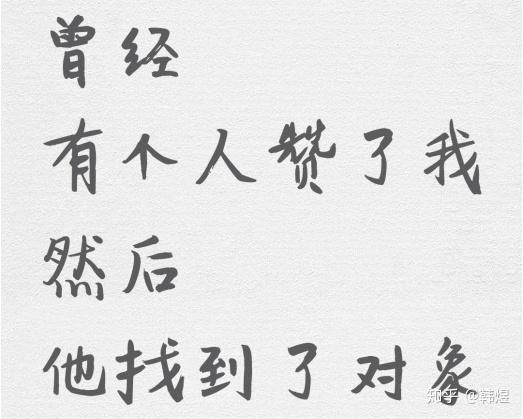 曾经
有个人赞了我
然后
他找到了对象
知乎 @韩煜